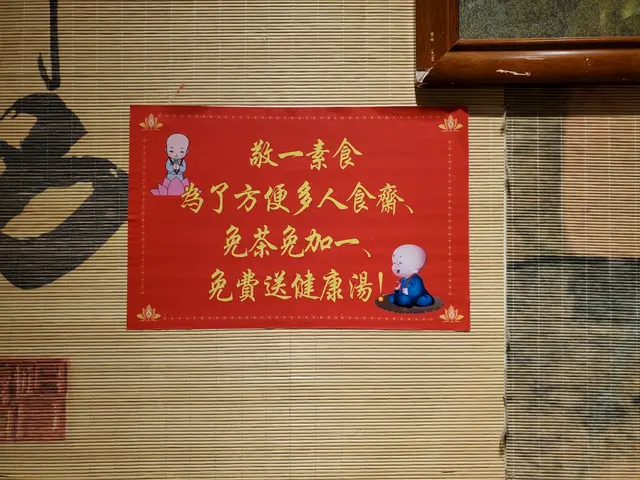 敬一素食
為了方便多人食齋、
免茶免加一、
免費送健康湯!